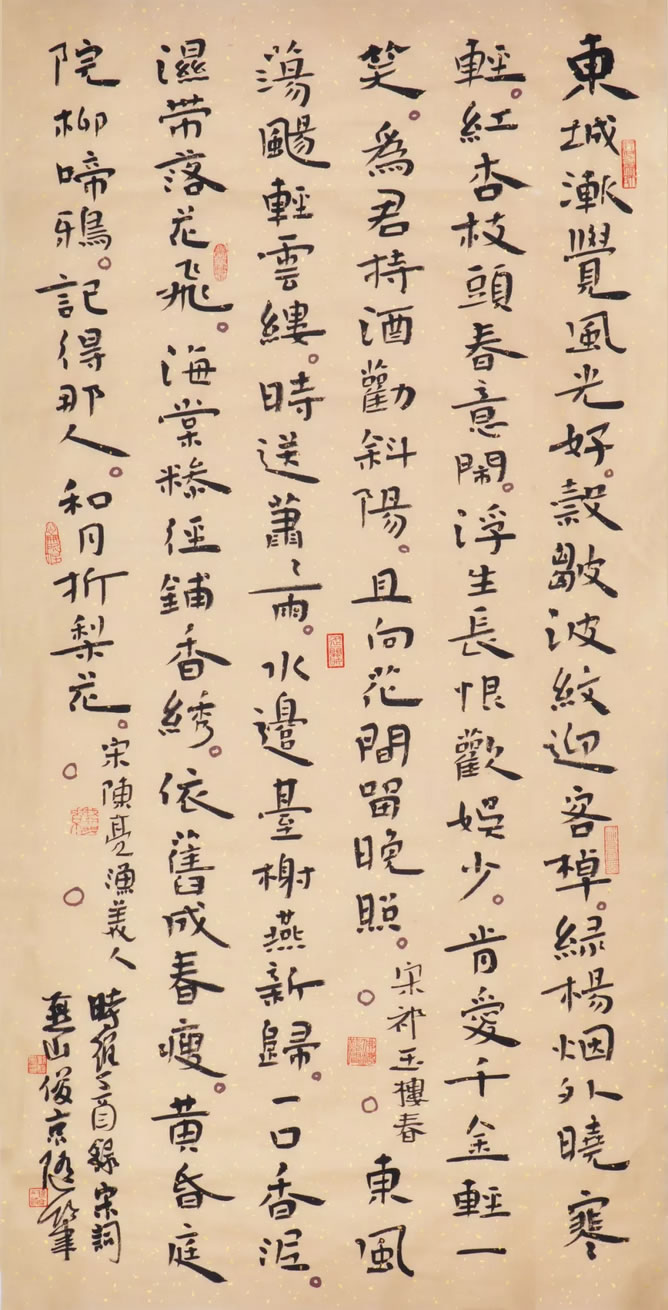 東城漸覺風光好。縠皺波紋迎客棹。綠楊烟外曉寒
輕。紅杏枝頭春意鬧。浮生長恨歡娛少。肯愛千金輕一
笑。爲君持酒勸斜陽。且向花間留晚照。宋祁玉樓春 東風
蕩颺輕雲縷。時送蕭〻雨。水邊臺榭燕新歸。一口香泥。
濕帶落花飛。海棠糝徑鋪香綉。依舊成春瘦。黄昏庭
院柳啼鴉。記得那人。和月折梨花。宋陳亮漁美人
時 錄宋詞
燕山俊京隨筆